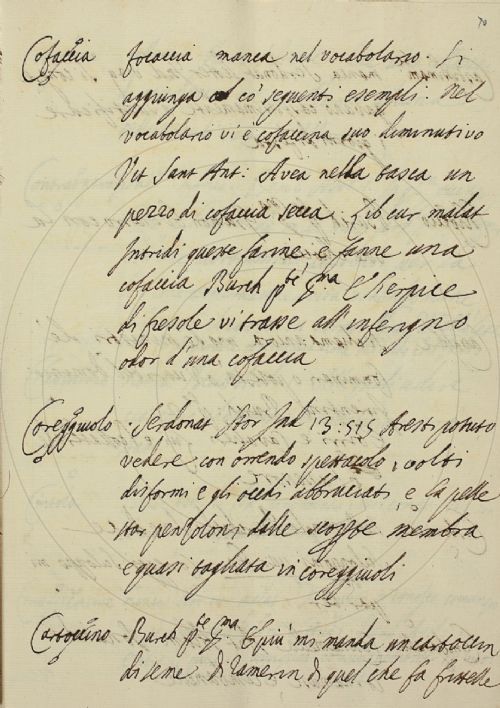 70
Cofaccia focaccia manca nel vocabolario. Si
aggiunga co' seguenti esempli. Nel
vocabolario vi è cofaccina suo diminutivo
Vit Sant Ant: Avea nella tasca un
pezzo di cofaccia secca Lib cur malat
Intridi queste farine, e fanne una
cofaccia Burch pte pma E l'erpice
di fiesole vi trasse all inferigno
odor d'una cofaccia
Coreggiuolo Serdonat Stor Ind 13: 515 Aresti potuto
vedere con orrendo spettacolo, i volti
disformi e gli occhi abbruciati, e la pelle
star penzoloni dalle membra
e quasi tagliata in coreggiuoli
Cartoccino Burch pte pma E più mi manda un cartoccin
di seme di ramerin di quel che fa frittelle